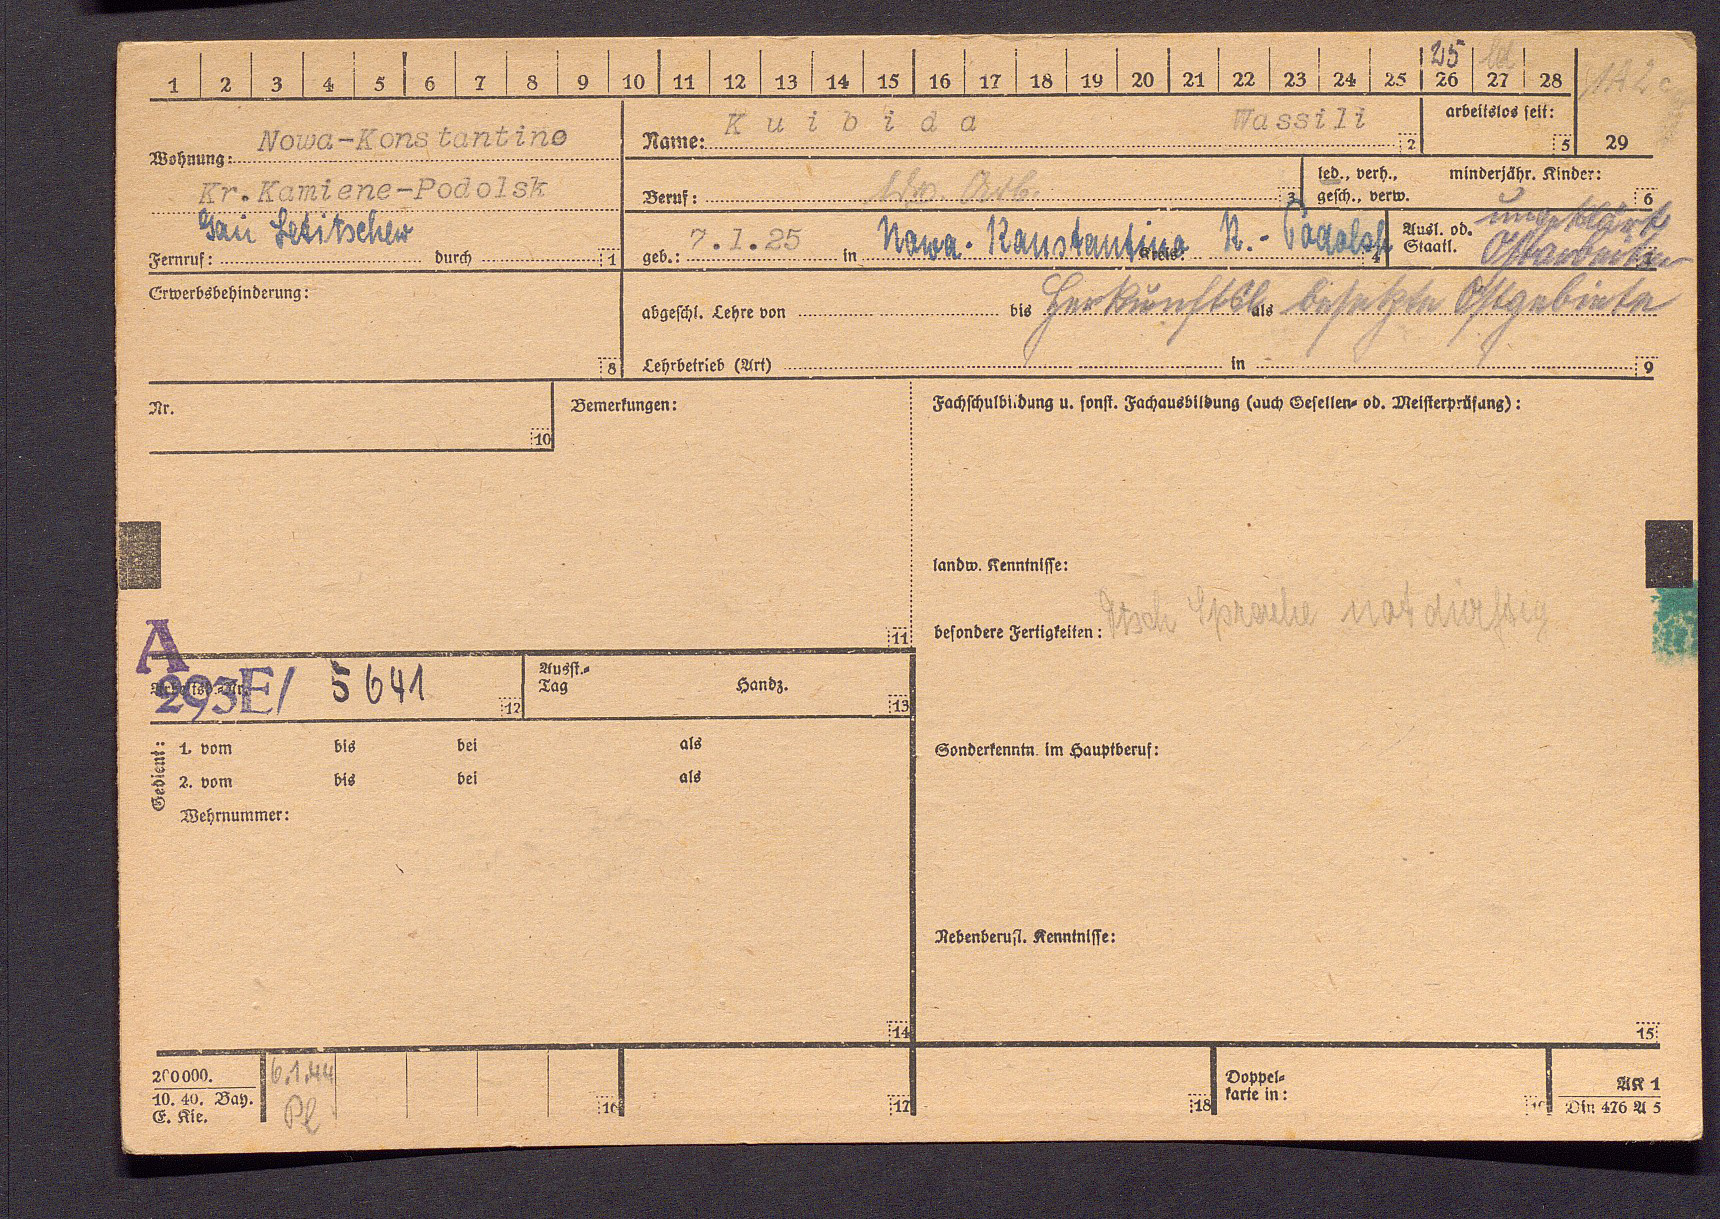 1 2 3 4 5 6 7 8 9 10 11 12 13 14 15 16 17 18 19 20 21 22 23 24 25 26 27 28
25
Wohnung: Nowa-Konstantino
Kr. Kamiene-Podolsk
Gau Letitschew
Fernruf: durch 1
Name: Kuibida Wassili 2
arbeitslos seit: 5
29
Beruf: ldw. Arb. 3
led., verh., gesch., verw.
minderjähr. Kinder: 6
geb.: 7.1.25 in Nowa-Konstantino Kreis: K.-Podolsk 4
Ausl. od. Staatl. ungeklärt
Ostarbeiter
Erwerbsbehinderung:
8
abgeschl. Lehre von bis als
Herkunftsl. besetzte Ostgebiete
Lehrbetrieb (Art) in 9
Nr.
10
Bemerkungen:
11
Fachschulbildung u. sonst. Fachausbildung (auch Gesellen- od. Meisterprüfung):
landw. Kenntnisse:
besondere Fertigkeiten: Dtsch Sprache notdürftig
A
293E/ 5641
12
Ausst.-Tag Handz.
13
Sonderkenntn. im Hauptberuf:
Gedient:
1. vom bis bei als
2. vom bis bei als
Wehrnummer:
Nebenberufl. Kenntnisse:
14
15
200000.
10. 40. Bay.
E. Kie.
6.1.44
Pl
16
17
18
Doppel-
karte in:
AK 1
Din 476 A 5